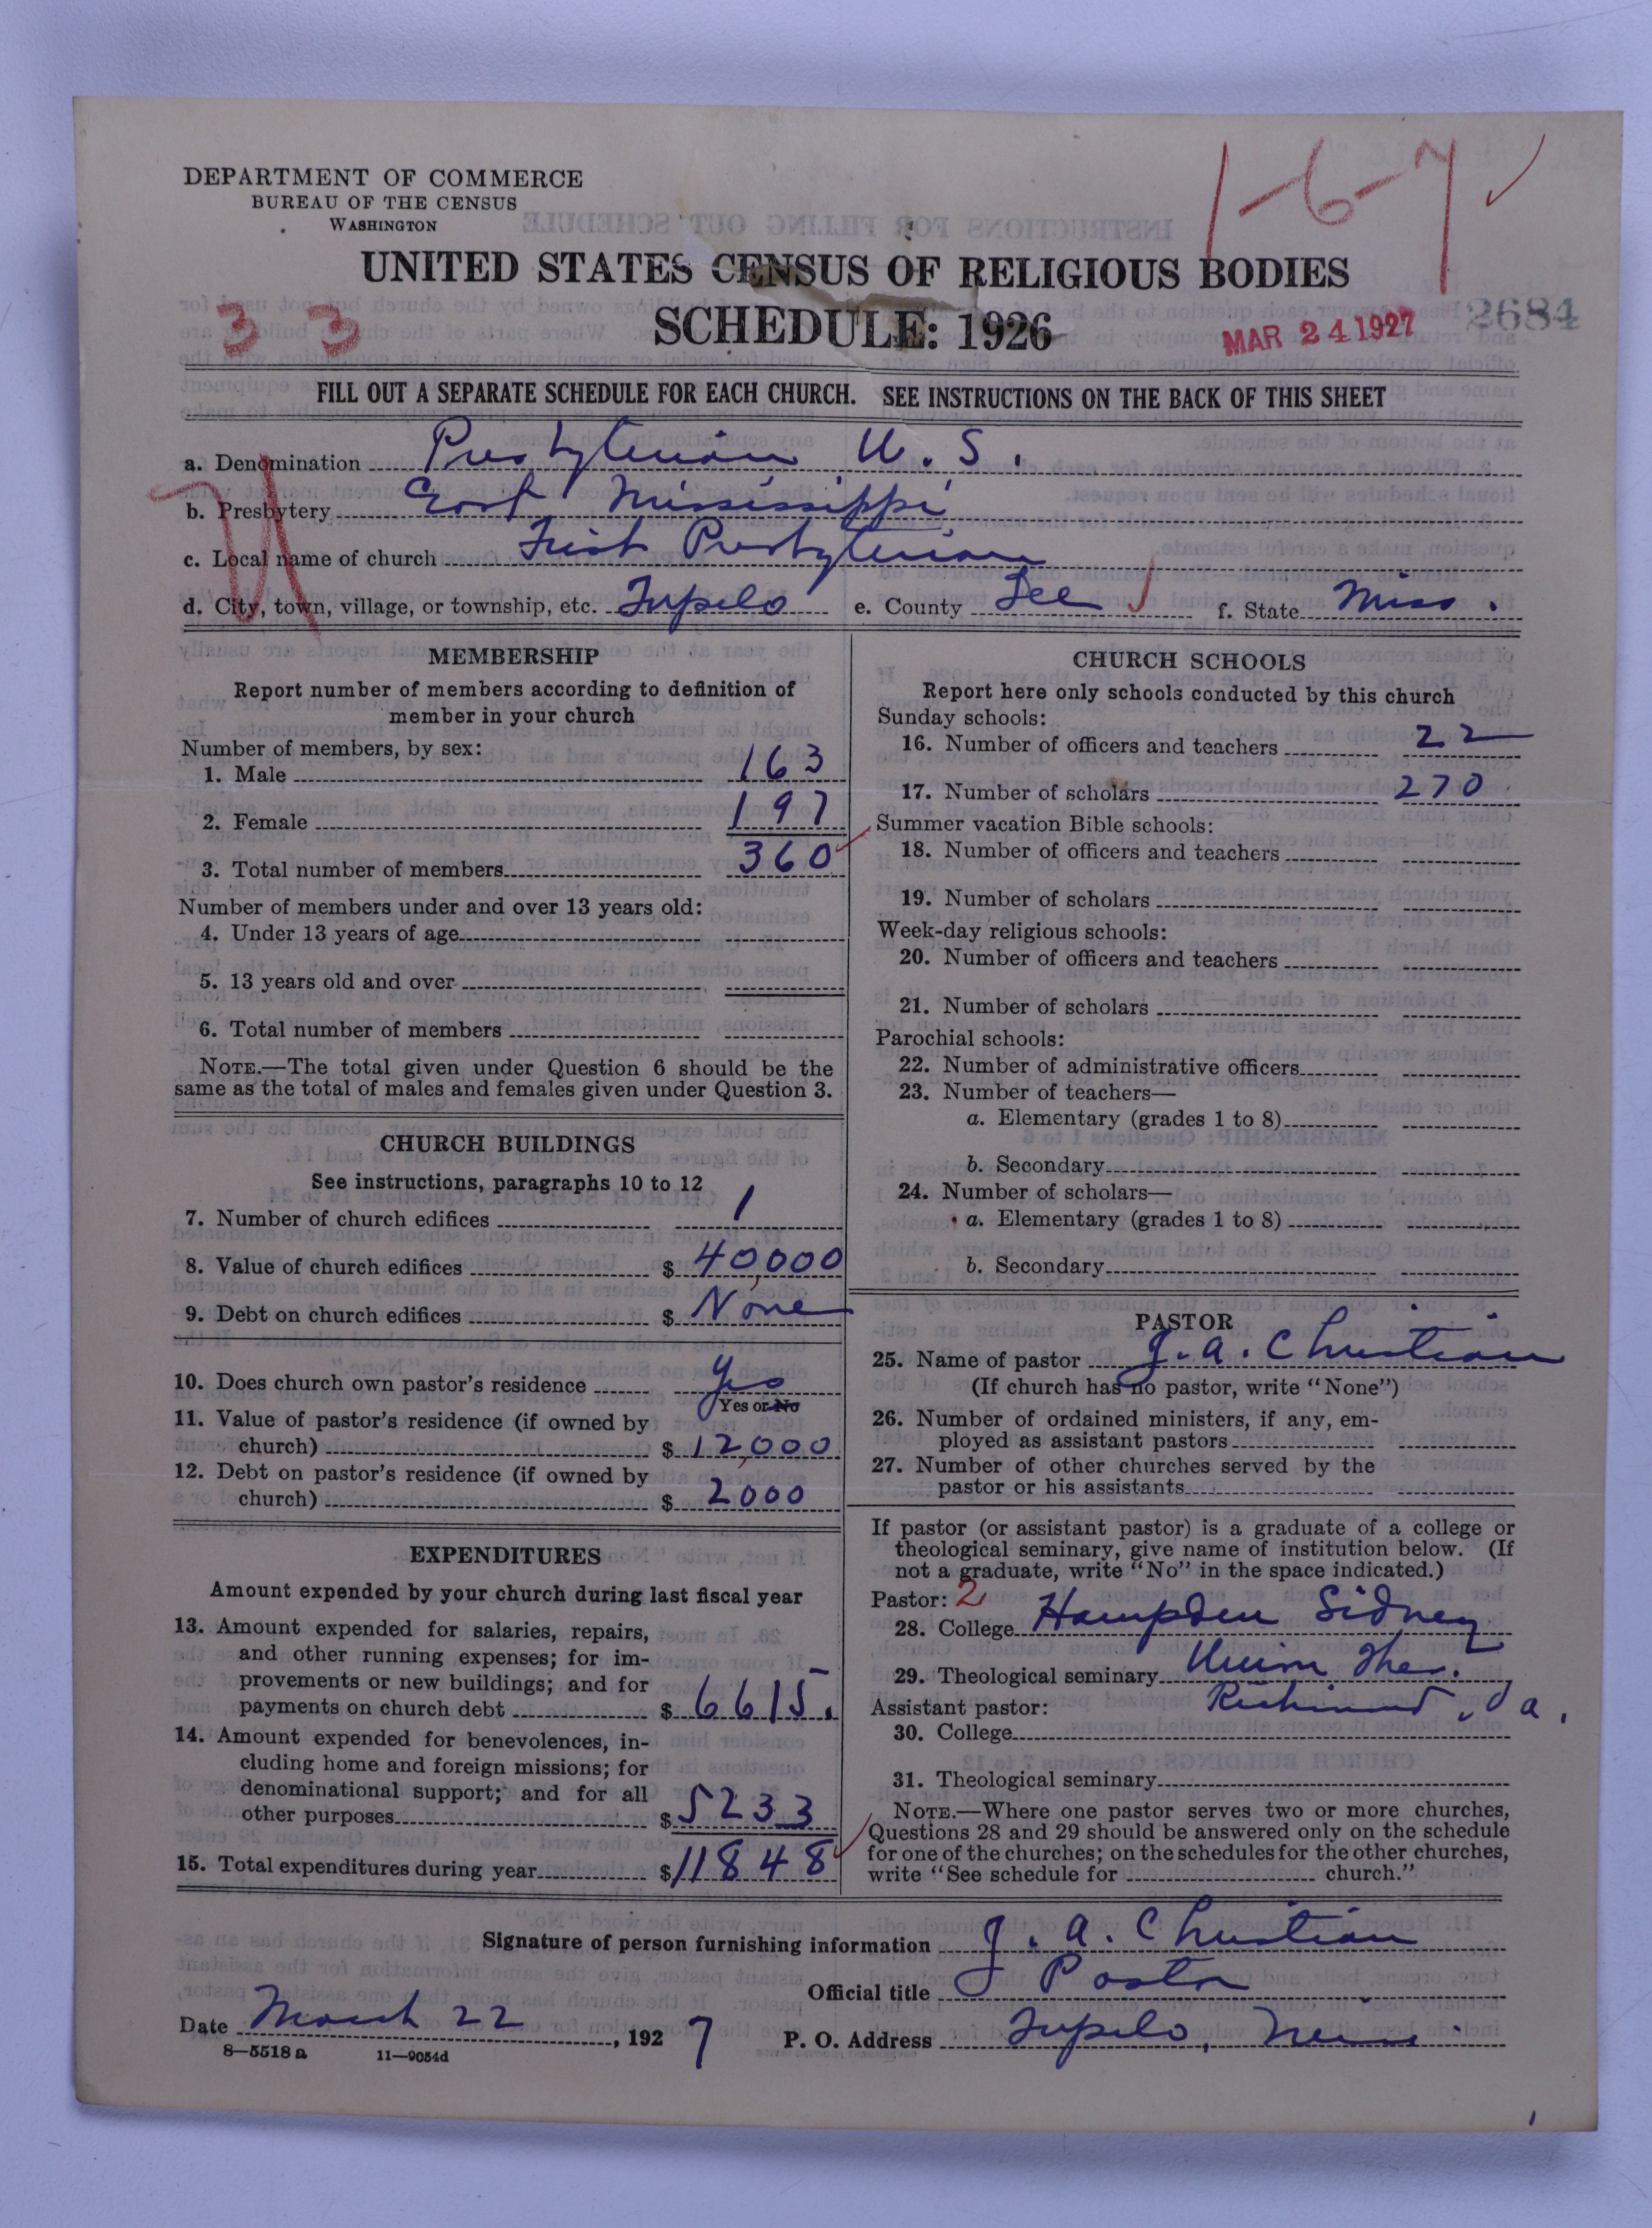 DEPARTMENT OF COMMERCE
BUREAU OF THE CENSUS
WASHINGTON
1-6-7
UNITED STATES CENSUS OF RELIGIOUS BODIES
33
SCHEDULE: 1926
MAR 24 1927
2684
FILL OUT A SEPARATE SCHEDULE FOR EACH CHURCH. SEE INSTRUCTIONS ON THE BACK OF THIS SHEET
a. Denomination Presbyterian U. S.
b. Presbytery East Mississippi
c. Local name of church First Presbyterian
d. City, town, village, or township, etc. Tupelo e. County Lee f. State Miss.
MEMBERSHIP
Report number of members according to definition of
member in your church
Number of members, by sex:
1. Male 163
2. Female 197
3. Total number of members 360
Number of members under and over 13 years old:
4. Under 13 years of age
5. 13 years old and over
6. Total number of members
NOTE.—The total given under Question 6 should be the
same as the total of males and females given under Question 3.
CHURCH BUILDINGS
See instructions, paragraphs 10 to 12
7. Number of church edifices 1
8. Value of church edifices $ 40,000
9. Debt on church edifices $ None
10. Does church own pastor's residence Yes
Yes or No
11. Value of pastor's residence (if owned by
church) $ 12,000
12. Debt on pastor's residence (if owned by
church) $ 2000
EXPENDITURES
Amount expended by your church during last fiscal year
13. Amount expended for salaries, repairs,
and other running expenses; for im-
provements or new buildings; and for
payments on church debt $ 6615.
14. Amount expended for benevolences, in-
cluding home and foreign missions; for
denominational support; and for all
other purposes $ 5233
15. Total expenditures during year $ 11848
CHURCH SCHOOLS
Report here only schools conducted by this church
Sunday schools:
16. Number of officers and teachers 22
17. Number of scholars 270
Summer vacation Bible schools:
18. Number of officers and teachers
19. Number of scholars
Week-day religious schools:
20. Number of officers and teachers
21. Number of scholars
Parochial schools:
22. Number of administrative officers
23. Number of teachers—
a. Elementary (grades 1 to 8)
b. Secondary
24. Number of scholars—
a. Elementary (grades 1 to 8)
b. Secondary
PASTOR
25. Name of pastor J. A. Christian
(If church has no pastor, write "None")
26. Number of ordained ministers, if any, em-
ployed as assistant pastors
27. Number of other churches served by the
pastor or his assistants
If pastor (or assistant pastor) is a graduate of a college or
theological seminary, give name of institution below. (If
not a graduate, write "No" in the space indicated.)
Pastor: 2
28. College Hampden Sidney
29. Theological seminary Union The.
Assistant pastor: Richmond, Va.
30. College
31. Theological seminary
NOTE.—Where one pastor serves two or more churches,
Questions 28 and 29 should be answered only on the schedule
for one of the churches; on the schedules for the other churches,
write "See schedule for church."
Signature of person furnishing information J. A. Christian
Official title Pastor
Date March 22, 1927 P. O. Address Tupelo, Miss.
8—5518 a 11—9054d